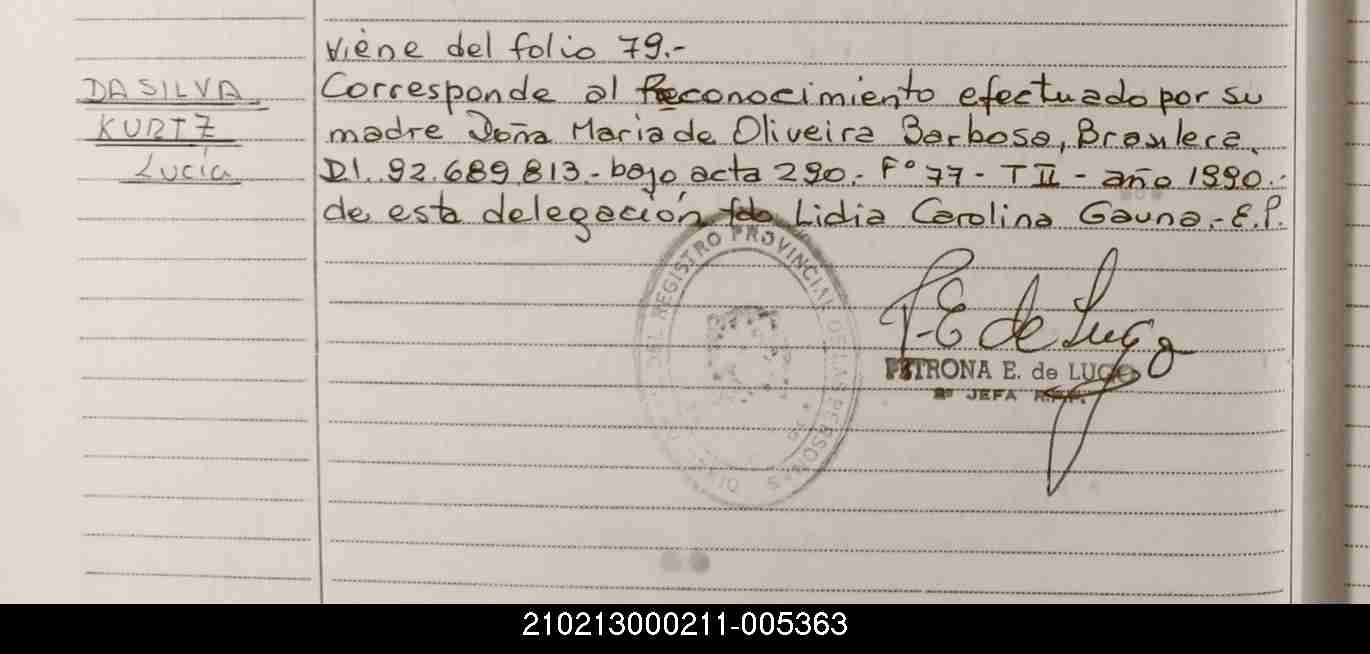 viene del folio 79.-
DA SILVA
KURTZ
Lucía
Corresponde al Reconocimiento efectuado por su
madre Doña Maria de Oliveira Barbosa, Brasilera,
DI. 92.689.813.- bajo acta 290.- Fº 77 - T II - año 1990.-
de esta delegación fdo Lidia Carolina Gauna.- E.P.
REGISTRO PROVINCIAL DE LAS PERSONAS
P. E de Lugo
PETRONA E. de LUGO
JEFA
210213000211-005363